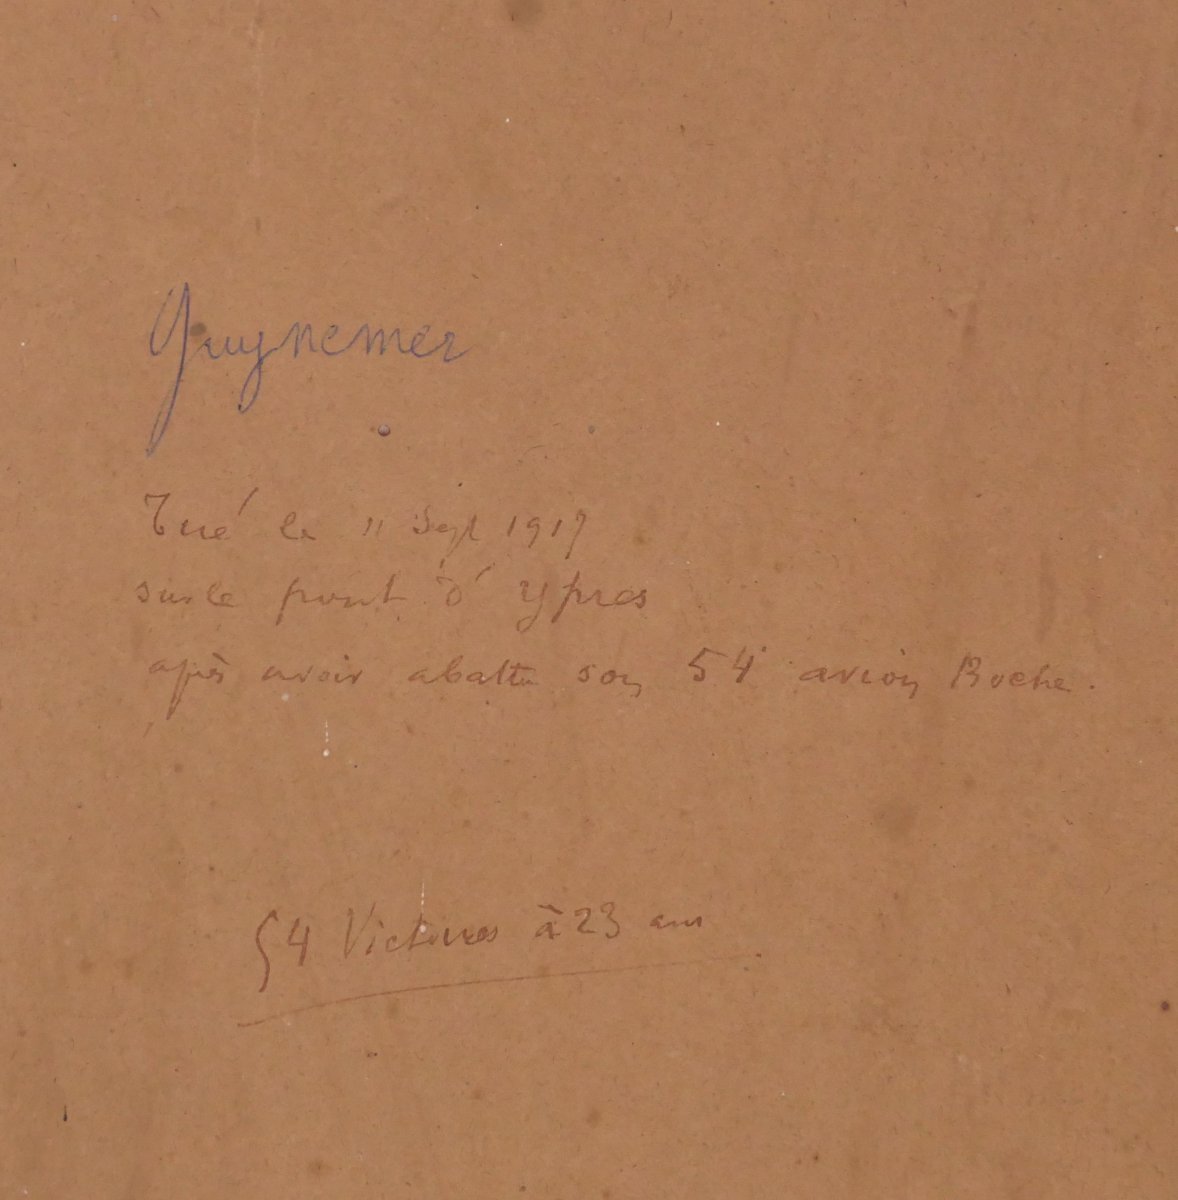 Guynemer
Tué le 11 Sept 1917
sur le front d'Ypres
après avoir abattu son 54e avion Boche.
54 Victoires à 23 ans